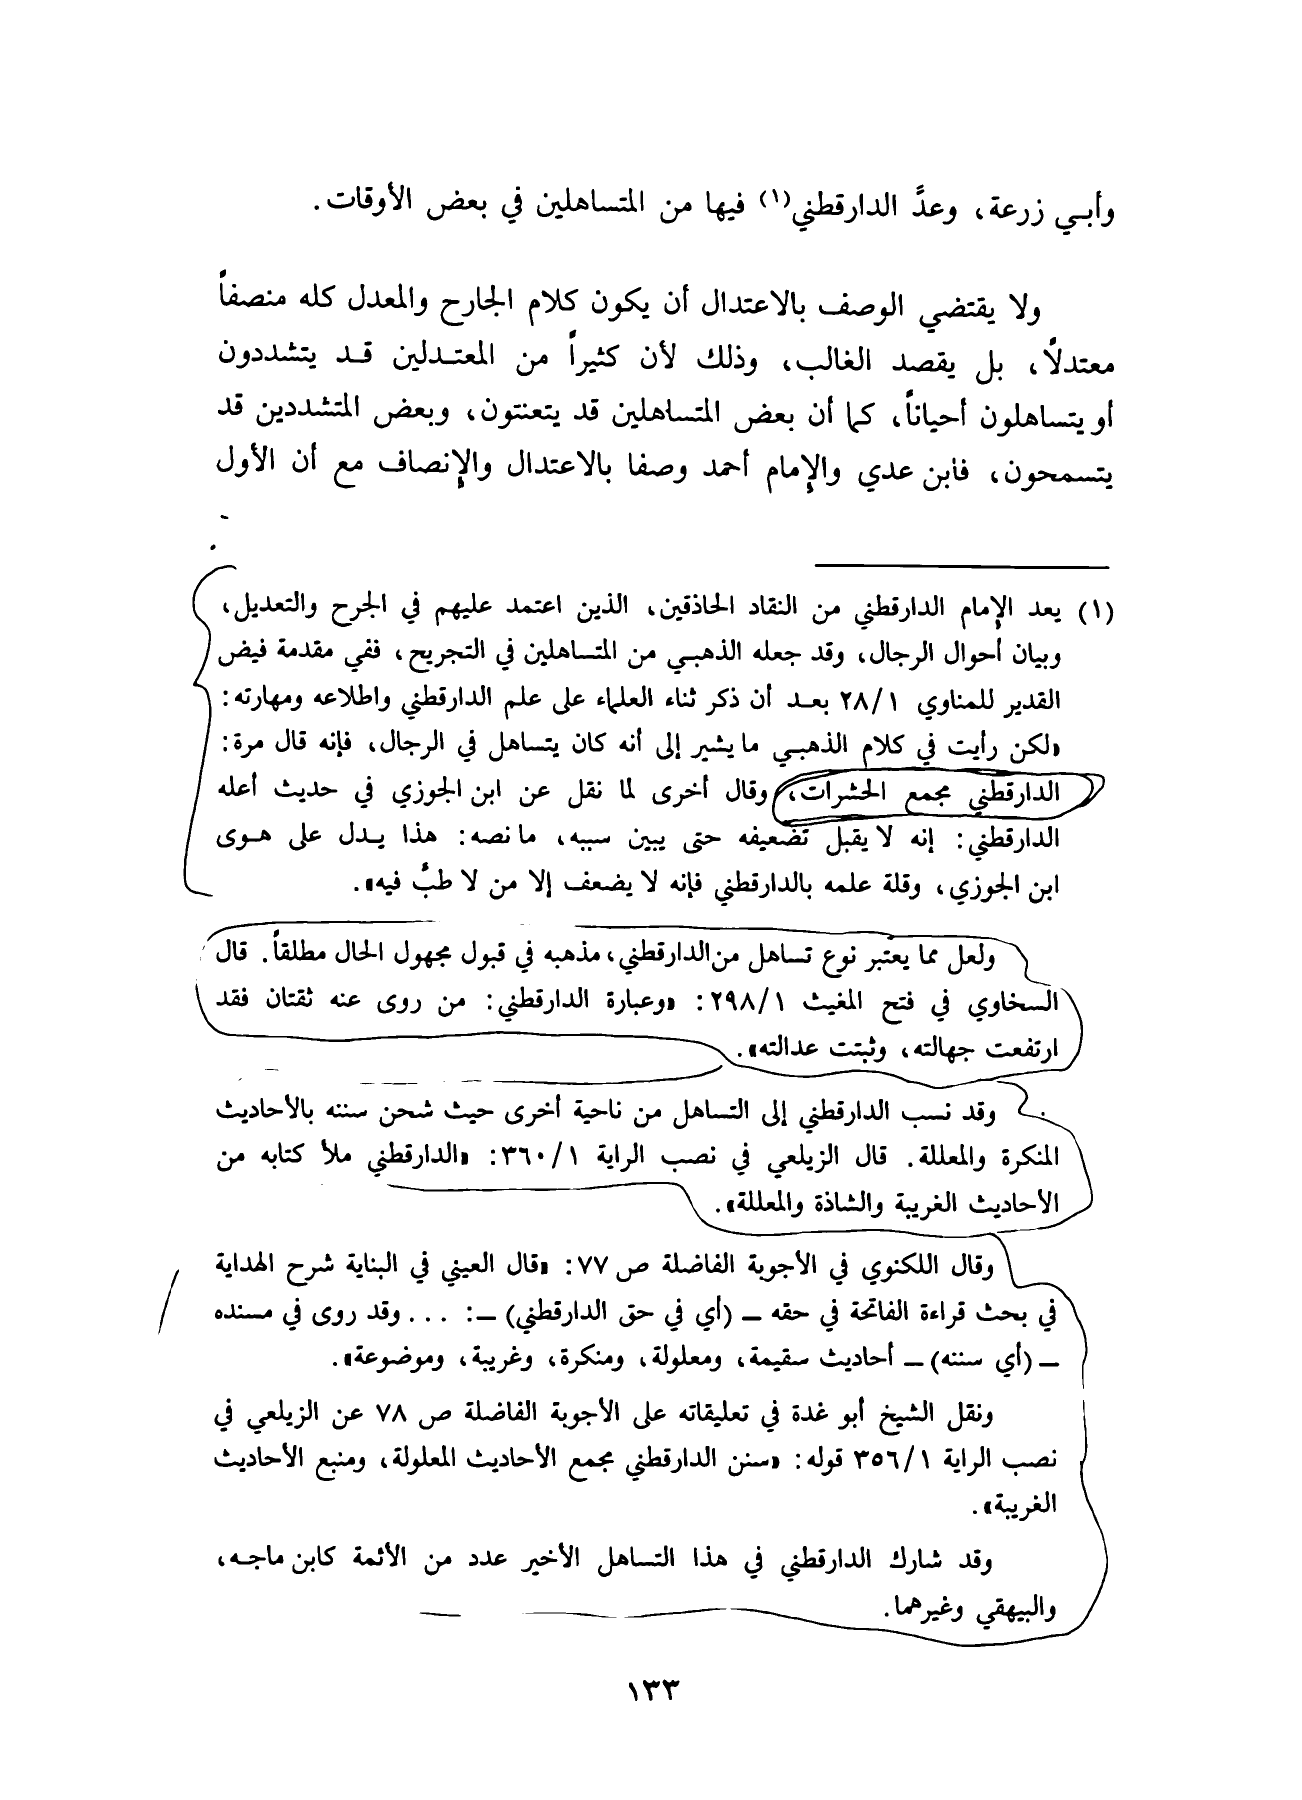 وأبـي زرعة، وعدَّ الدارقطني(١) فيها من المتساهلين في بعض الأوقات.
ولا يقتضي الوصف بالاعتدال أن يكون كلام الجارح والمعدل كله منصفاً
معتدلاً، بل يقصد الغالب، وذلك لأن كثيراً من المعتـدلين قـد يتشددون
أو يتساهلون أحياناً، كما أن بعض المتساهلين قد يتعنتون، وبعض المتشددين قد
يتسمحون، فابن عدي والإمام أحمد وصفا بالاعتدال والإنصاف مع أن الأول
(١) يعد الإمام الدارقطني من النقاد الحاذقين، الذين اعتمد عليهم في الجرح والتعديل،
وبيان أحوال الرجال، وقد جعله الذهبـي من المتساهلين في التجريح، ففي مقدمة فيض
القدير للمناوي ٢٨/١ بعـد أن ذكر ثناء العلماء على علم الدارقطني واطلاعه ومهارته:
«لكن رأيت في كلام الذهبـي ما يشير إلى أنه كان يتساهل في الرجال، فإنه قال مرة:
الدارقطني مجمع الحشرات، وقال أخرى لما نقل عن ابن الجوزي في حديث أعله
الدارقطني: إنه لا يقبل تضعيفه حتى يبين سببه، ما نصه: هذا يـدل على هـوى
ابن الجوزي، وقلة علمه بالدارقطني فإنه لا يضعف إلا من لا طبُّ فيه».
ولعل مما يعتبر نوع تساهل من الدارقطني، مذهبه في قبول مجهول الحال مطلقاً. قال
السخاوي في فتح المغيث ٢٩٨/١: «وعبارة الدارقطني: من روى عنه ثقتان فقد
ارتفعت جهالته، وثبتت عدالته».
وقد نسب الدارقطني إلى التساهل من ناحية أخرى حيث شحن سننه بالأحاديث
المنكرة والمعللة. قال الزيلعي في نصب الراية ٣٦٠/١: «الدارقطني ملأ كتابه من
الأحاديث الغريبة والشاذة والمعللة».
وقال اللكنوي في الأجوبة الفاضلة ص ٧٧: «قال العيني في البناية شرح الهداية
في بحث قراءة الفاتحة في حقه ــ (أي في حق الدارقطني) ــ: ... وقد روى في مسنده
ــ (أي سننه) ــ أحاديث سقيمة، ومعلولة، ومنكرة، وغريبة، وموضوعة».
ونقل الشيخ أبو غدة في تعليقاته على الأجوبة الفاضلة ص ٧٨ عن الزيلعي في
نصب الراية ٣٥٦/١ قوله: «سنن الدارقطني مجمع الأحاديث المعلولة، ومنبع الأحاديث
الغريبة».
وقد شارك الدارقطني في هذا التساهل الأخير عدد من الأئمة كابن ماجـه،
والبيهقي وغيرهما.
١٣٣